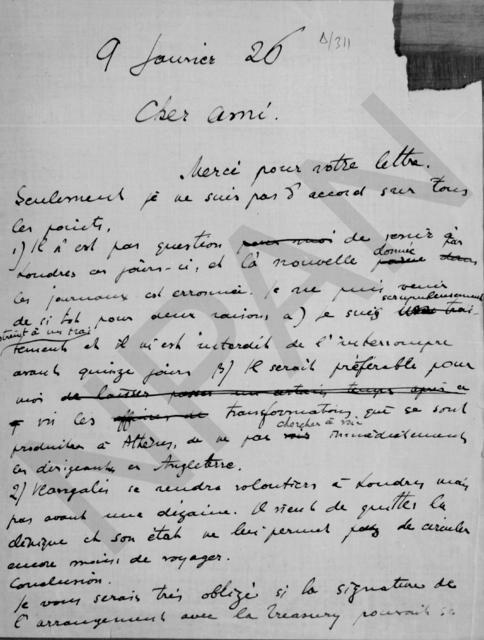 9 Janvier 26
Δ/311
Cher ami.
Merci pour votre lettre.
Seulement je ne suis pas d'accord sur tous
les points.
1) Il n'est pas question pour moi de venir à
Londres ces jours-ci, et la nouvelle donnée par
les journaux est erronée. Je ne puis venir
de si tôt pour deux raisons, a) je suis scrupuleusement
astreint à un traitement et il m'est interdit de l'interrompre
avant quinze jours β) Il serait préférable pour
moi de laisser passer un certain temps après ce
vu les transformations qui se sont
produites à Athènes, de ne pas chercher à voir immédiatement
les dirigeants en Angleterre.
2) se rendra volontiers à Londres mais
pas avant une dizaine. Il vient de quitter la
clinique et son état ne lui permet pas de circuler
encore moins de voyager.
Conclusion.
Je vous serais très obligé si la signature de
l'arrangement avec la Treasury pouvait se
NPAN